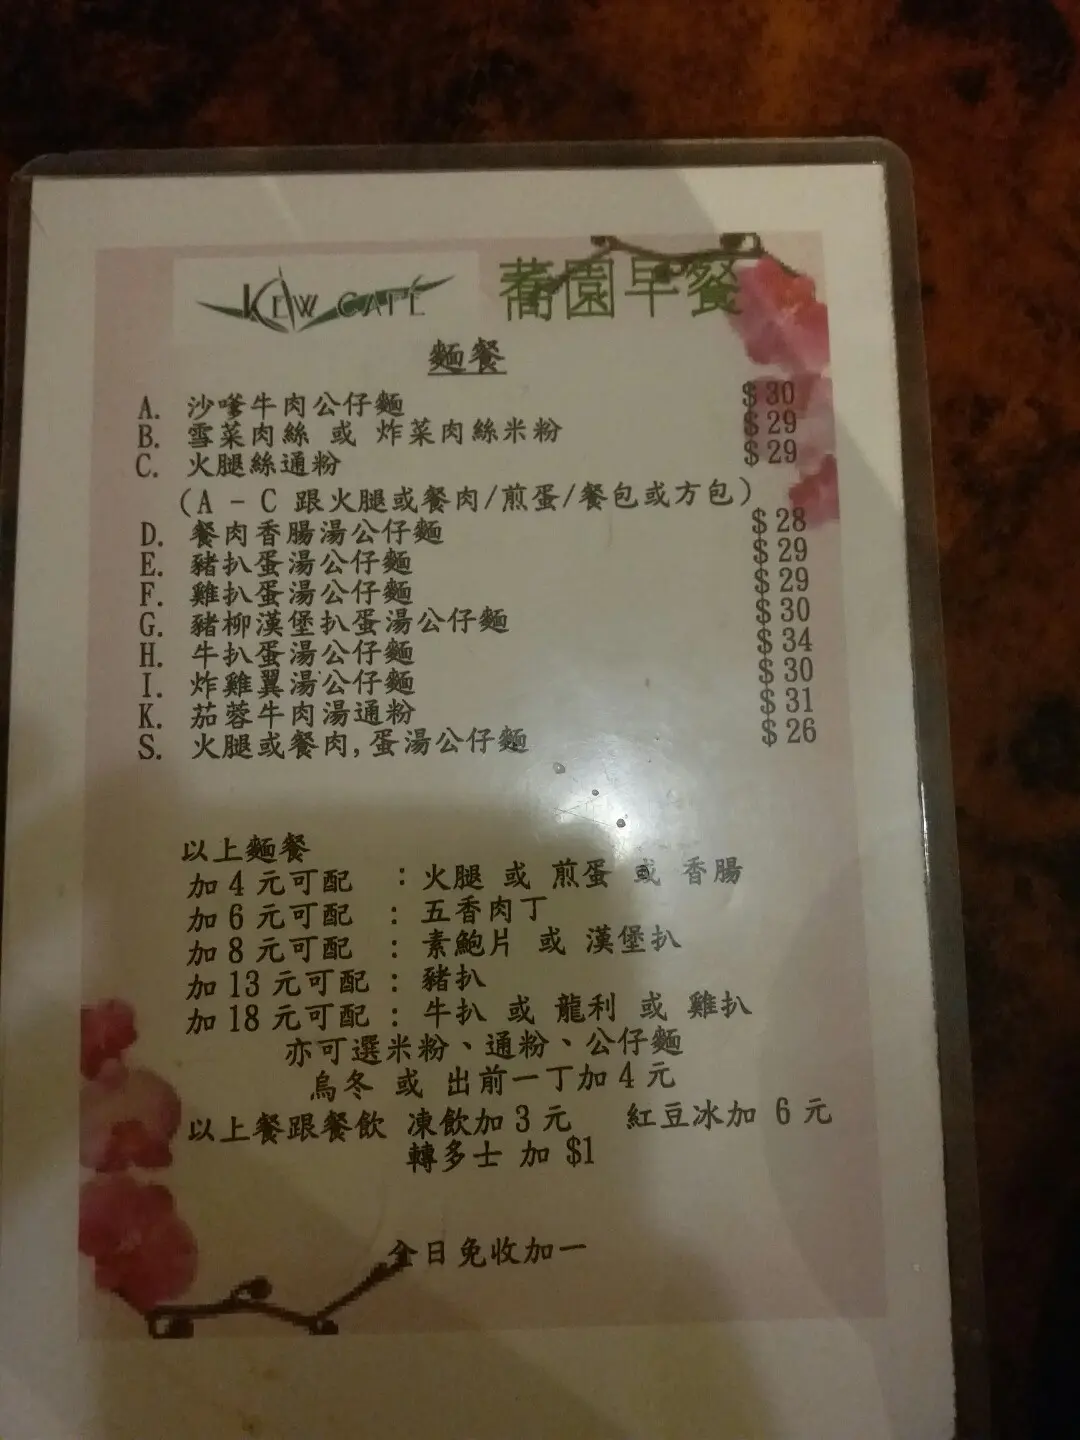 KEW CAFE 蕎園早餐
麵餐
A. 沙嗲牛肉公仔麵 $30
B. 雪菜肉絲 或 炸菜肉絲米粉 $29
C. 火腿絲通粉 $29
(A - C 跟火腿或餐肉/煎蛋/餐包或方包)
D. 餐肉香腸湯公仔麵 $28
E. 豬扒蛋湯公仔麵 $29
F. 雞扒蛋湯公仔麵 $29
G. 豬柳漢堡扒蛋湯公仔麵 $30
H. 牛扒蛋湯公仔麵 $34
I. 炸雞翼湯公仔麵 $30
K. 茄蓉牛肉湯通粉 $31
S. 火腿或餐肉,蛋湯公仔麵 $26
以上麵餐
加 4 元可配 : 火腿 或 煎蛋 或 香腸
加 6 元可配 : 五香肉丁
加 8 元可配 : 素鮑片 或 漢堡扒
加 13 元可配 : 豬扒
加 18 元可配 : 牛扒 或 龍利 或 雞扒
亦可選米粉、通粉、公仔麵
烏冬 或 出前一丁加 4 元
以上餐跟餐飲 凍飲加 3 元 紅豆冰加 6 元
轉多士 加 $1
全日免收加一